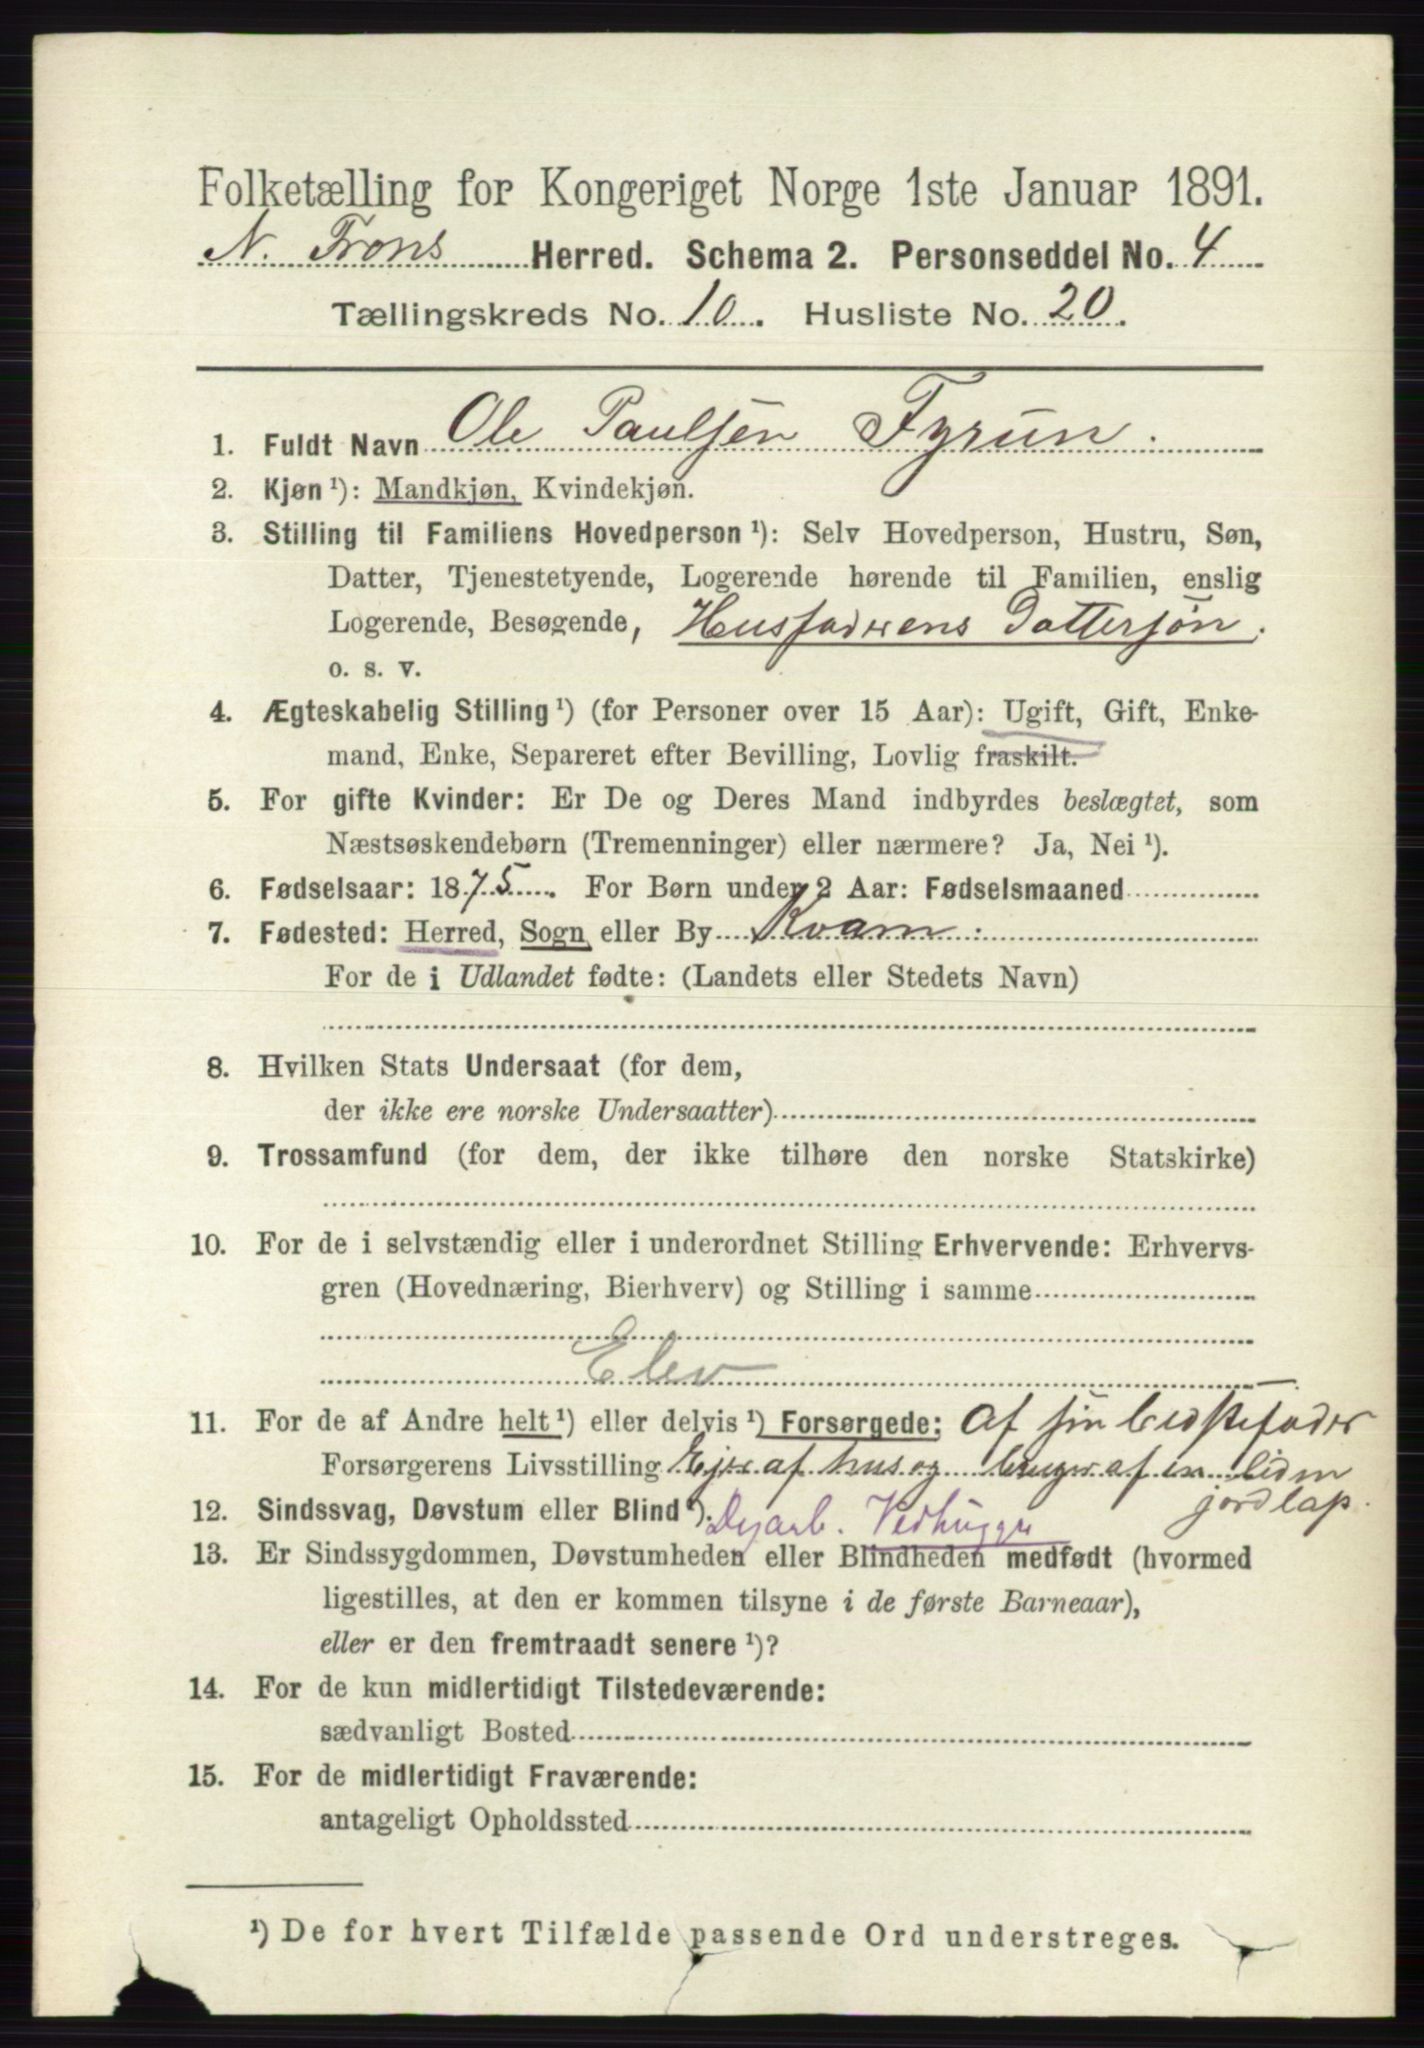 Folketælling for Kongeriget Norge 1ste Januar 1891.
N. Frons Herred. Schema 2. Personseddel No. 4
Tællingskreds No. 10. Husliste No. 20.
1. Fuldt Navn Ole Paulsen Fyrun.
2. Kjøn ¹): Mandkjøn, Kvindekjøn.
3. Stilling til Familiens Hovedperson ¹): Selv Hovedperson, Hustru, Søn,
Datter, Tjenestetyende, Logerende hørende til Familien, enslig
Logerende, Besøgende, Husfaderens Dattersøn.
o. s. v.
4. Ægteskabelig Stilling ¹) (for Personer over 15 Aar): Ugift, Gift, Enke-
mand, Enke, Separeret efter Bevilling, Lovlig fraskilt.
5. For gifte Kvinder: Er De og Deres Mand indbyrdes beslægtet, som
Næstsøskendebørn (Tremenninger) eller nærmere? Ja, Nei ¹).
6. Fødselsaar: 1875. For Børn under 2 Aar: Fødselsmaaned
7. Fødested: Herred, Sogn eller By Kvam.
For de i Udlandet fødte: (Landets eller Stedets Navn)
8. Hvilken Stats Undersaat (for dem,
der ikke ere norske Undersaatter)
9. Trossamfund (for dem, der ikke tilhøre den norske Statskirke)
10. For de i selvstændig eller i underordnet Stilling Erhvervende: Erhvervs-
gren (Hovednæring, Bierhverv) og Stilling i samme
Elev
11. For de af Andre helt ¹) eller delvis ¹) Forsørgede: Af sin bedstefader
Forsørgerens Livsstilling Ejer af hus og bruger af en liden
jordlap.
12. Sindssvag, Døvstum eller Blind ¹). Dagarb. Vedhugger
13. Er Sindssygdommen, Døvstumheden eller Blindheden medfødt (hvormed
ligestilles, at den er kommen tilsyne i de første Barneaar),
eller er den fremtraadt senere ¹)?
14. For de kun midlertidigt Tilstedeværende:
sædvanligt Bosted
15. For de midlertidigt Fraværende:
antageligt Opholdssted
¹) De for hvert Tilfælde passende Ord understreges.